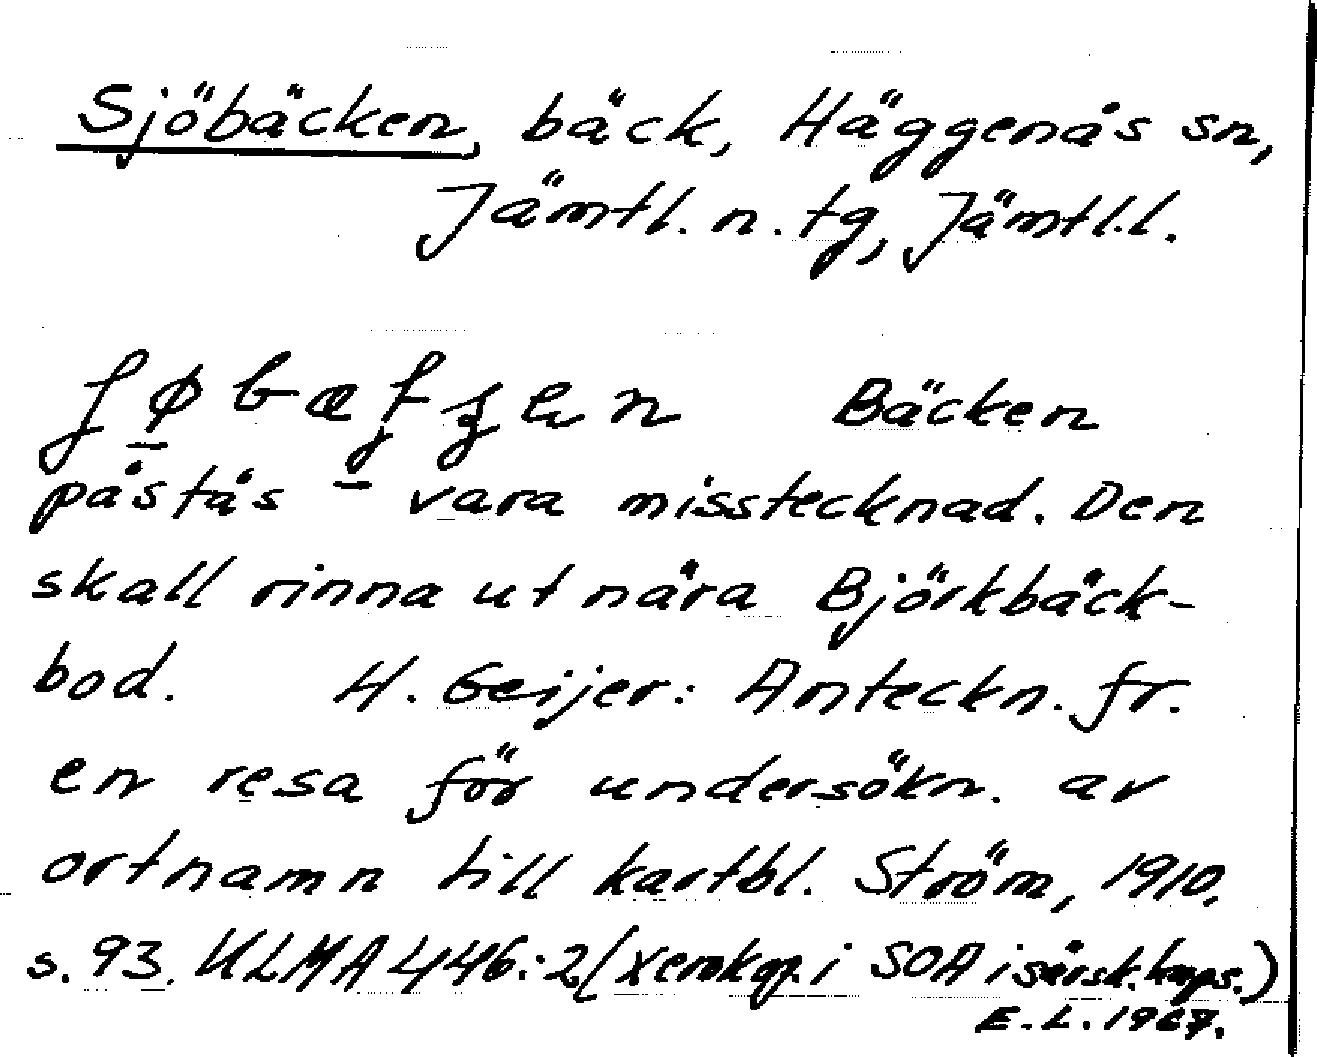 Sjöbäcken, bäck, Häggenås sn,
Jämtl. n. tg, Jämtl.l.
Bäcken
påstås vara misstecknad. Den
skall rinna ut nära Björkbäck-
bod. H. Geijer: Anteckn. fr.
en resa för undersökn. av
ortnamn till kartbl. Ström, 1910,
s. 93. ULMA 446:2 (Xerokop. i SOA i särsk. kaps.)
E.L. 1967.